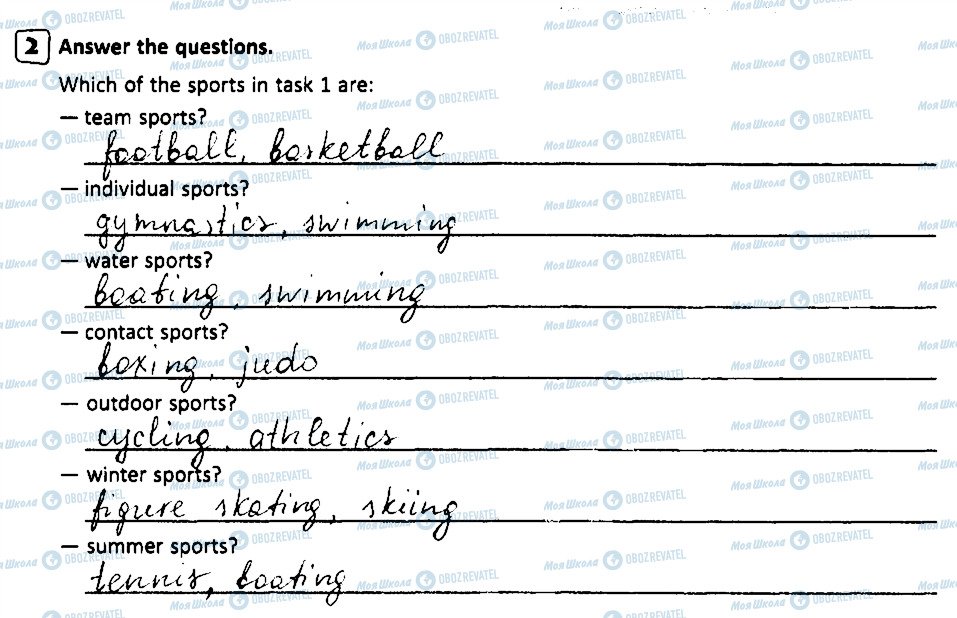 2 Answer the questions.
Which of the sports in task 1 are:
— team sports?
football, basketball
— individual sports?
gymnastics, swimming
— water sports?
boating, swimming
— contact sports?
boxing, judo
— outdoor sports?
cycling, athletics
— winter sports?
figure skating, skiing
— summer sports?
tennis, boating
МояШкола OBOZREVATEL